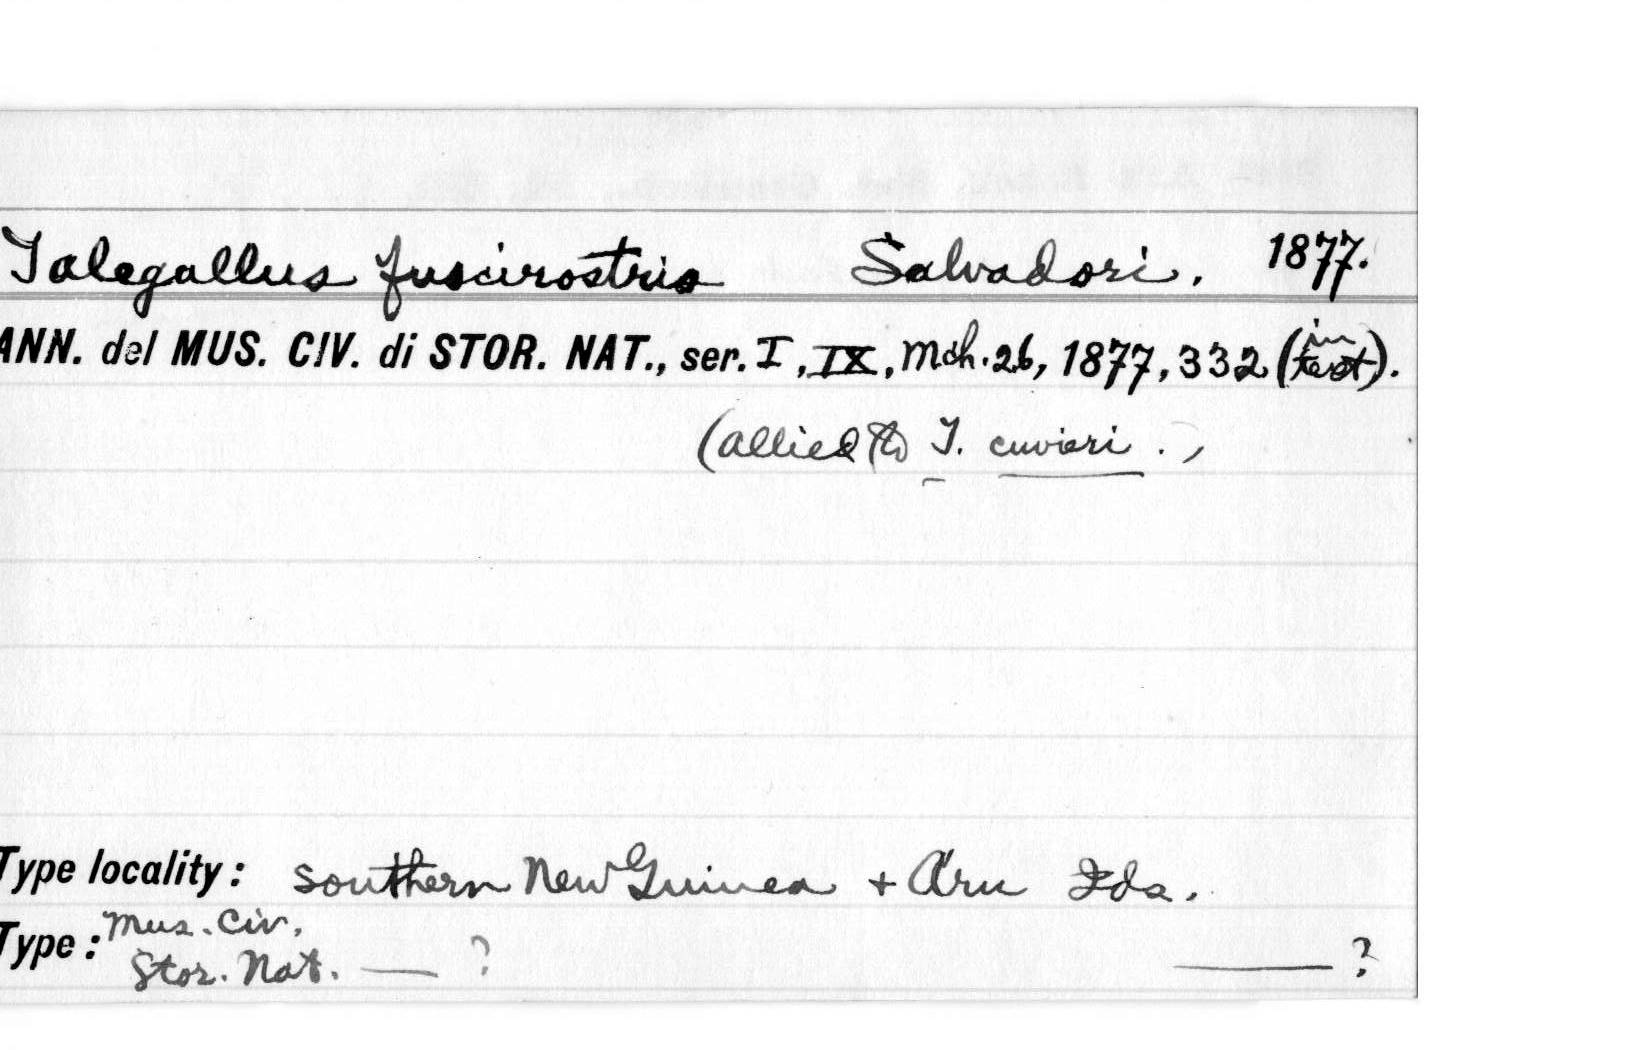 Talegallus fuscirostris Salvadori. 1877.
ANN. del MUS. CIV. di STOR. NAT., ser. I, IX, Mch. 26, 1877, 332 (in text).
(allied to T. cuvieri.)
Type locality: southern New Guinea + Aru Ids.
Type: Mus. Civ.
Stor. Nat. — ? — ?